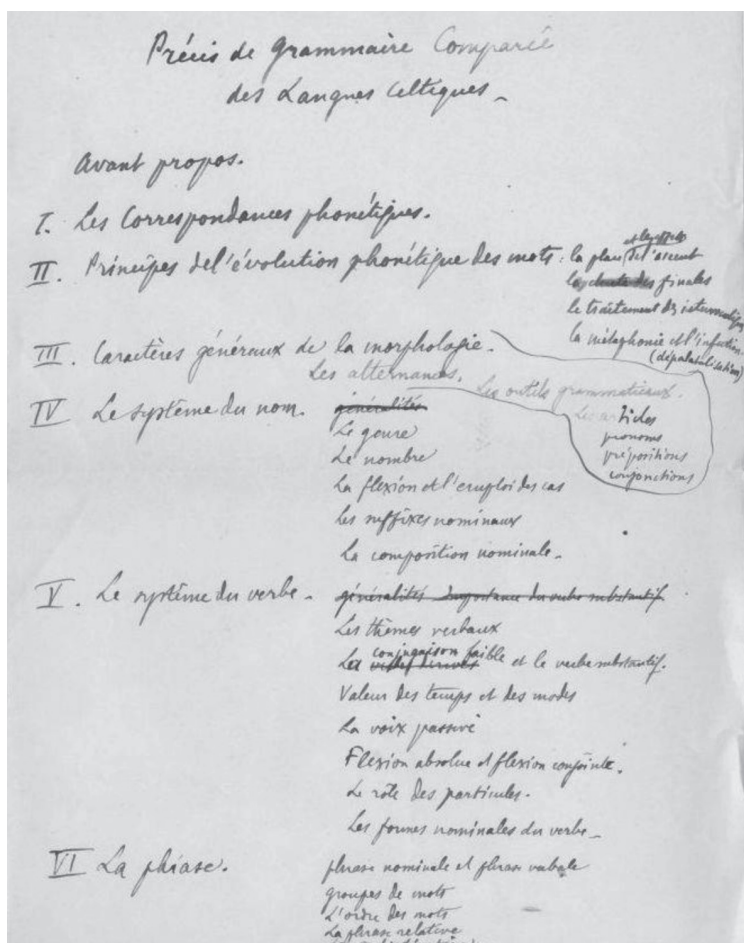 Précis de Grammaire Comparée
des Langues Celtiques _
Avant propos.
I. Les Correspondances phonétiques.
II. Principes de l'évolution phonétique des mots : la place et les effets de l'accent
les chutes des finales
le traitement des intervocaliques
la métaphonie et l'infection
(dépalatalisation)
III. Caractères généraux de la morphologie.
Les alternances. Les outils grammaticaux.
Les articles
pronoms
prépositions
conjonctions
IV Le système du nom. généralités
Le genre
Le nombre
La flexion et l'emploi des cas
Les suffixes nominaux
La composition nominale _
V. Le système du verbe - généralités Importance du verbe substantif.
Les thèmes verbaux
La conjugaison faible et le verbe substantif.
Valeur des temps et des modes
La voix passive
Flexion absolue et flexion conjointe.
Le rôle des particules.
Les formes nominales du verbe _
VI La phrase. phrase nominale et phrase verbale
groupes de mots
L'ordre des mots
La phrase relative